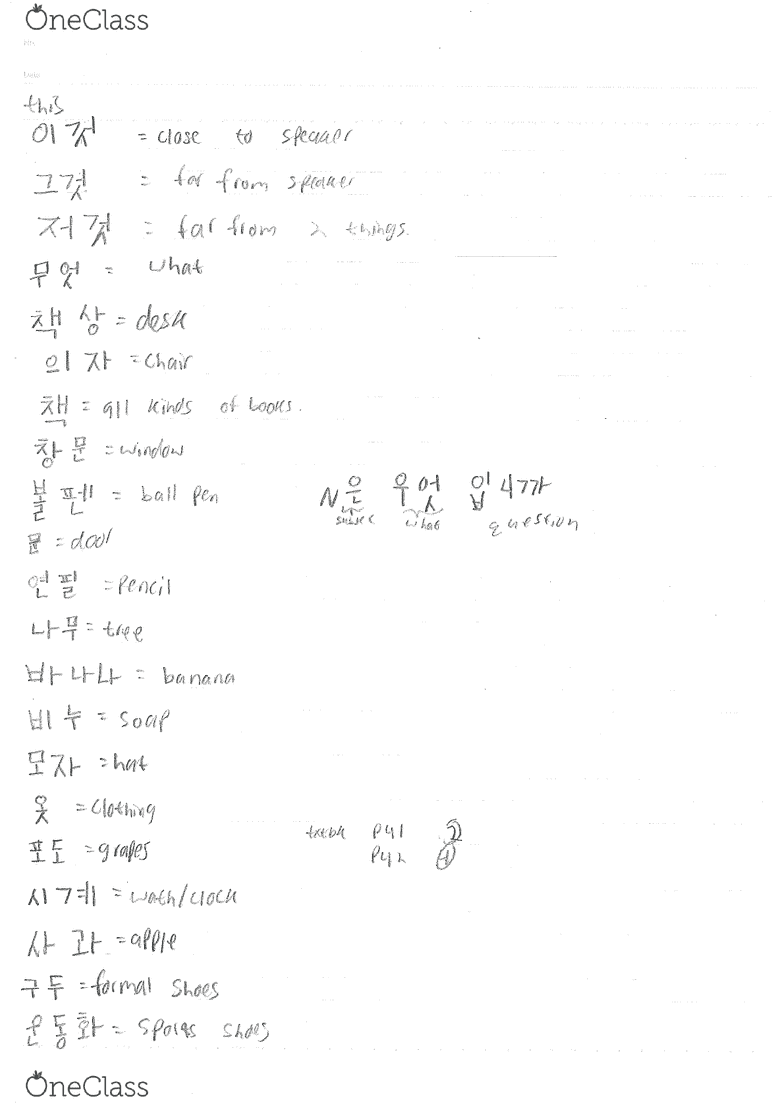 OneClass
this
이것 = close to speaker
그것 = far from speaker
저것 = far from 2 things.
무엇 = what
책상 = desk
의자 = chair
책 = all kinds of books.
창문 = window
볼펜 = ball pen
N은 무엇 입니까
what question
문 = door
연필 = pencil
나무 = tree
바나나 = banana
비누 = soap
모자 = hat
옷 = clothing
포도 = grapes
P41 2
P42
시계 = wath/clock
사과 = apple
구두 = formal shoes
운동화 = sports shoes
OneClass